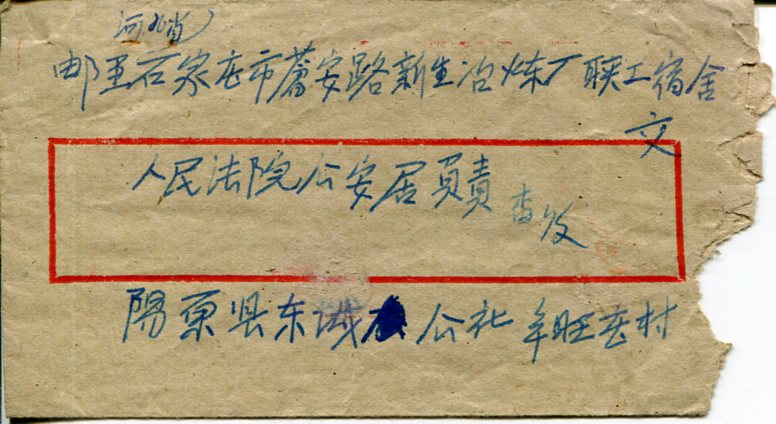 河北省
邮至石家庄市蒿安路新生冶炼厂联工宿舍
交
人民法院公安居負責
查收
陽原县东城公社辛旺庄村